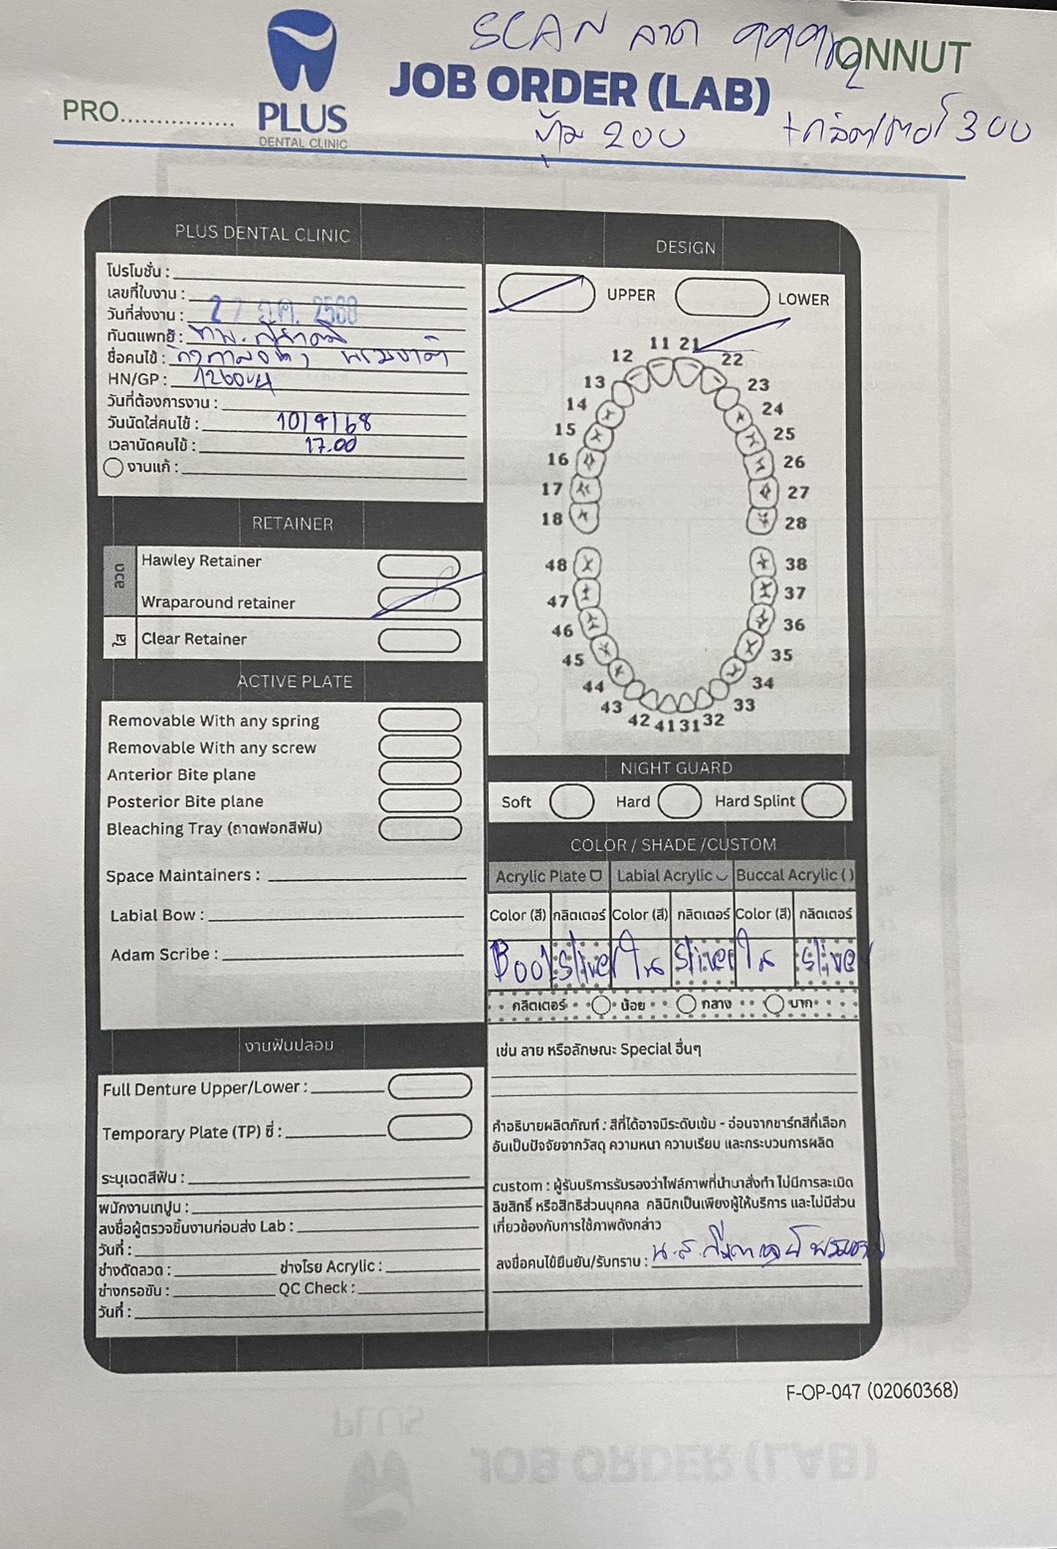 SCAN ลวด
ONNUT
JOB ORDER (LAB)
PRO................
PLUS
DENTAL CLINIC
ปุ่ม 200
+กลิตเตอร์ 300
PLUS DENTAL CLINIC
โปรโมชั่น :
เลขที่ใบงาน :
วันที่ส่งงาน : 27 2568
ทันตแพทย์ : ทพ.
ชื่อคนไข้ :
HN/GP :
วันที่ต้องการงาน :
วันนัดใส่คนไข้ : 10/9/68
เวลานัดคนไข้ : 17.00
งานแก้ :
RETAINER
ลวด
Hawley Retainer
Wraparound retainer
ใส
Clear Retainer
ACTIVE PLATE
Removable With any spring
Removable With any screw
Anterior Bite plane
Posterior Bite plane
Bleaching Tray (ถาดฟอกสีฟัน)
Space Maintainers :
Labial Bow :
Adam Scribe :
งานฟันปลอม
Full Denture Upper/Lower :
Temporary Plate (TP) ซี่ :
ระบุเฉดสีฟัน :
พนักงานเทปูน :
ลงชื่อผู้ตรวจชิ้นงานก่อนส่ง Lab :
วันที่ :
ช่างดัดลวด : ช่างโรย Acrylic :
ช่างกรอขัด : QC Check :
วันที่ :
DESIGN
UPPER LOWER
11 21
12 22
13 23
14 24
15 25
16 26
17 27
18 28
48 38
47 37
46 36
45 35
44 34
43 33
42 41 31 32
NIGHT GUARD
Soft Hard Hard Splint
COLOR / SHADE /CUSTOM
Acrylic Plate Labial Acrylic Buccal Acrylic ( )
Color (สี) กลิตเตอร์ Color (สี) กลิตเตอร์ Color (สี) กลิตเตอร์
sliver ใส sliver ใส slive
กลิตเตอร์ น้อย กลาง มาก
เช่น ลาย หรือลักษณะ Special อื่นๆ
คำอธิบายผลิตภัณฑ์ : สีที่ได้อาจมีระดับเข้ม - อ่อนจากชาร์ทสีที่เลือก
อันเป็นปัจจัยจากวัสดุ ความหนา ความเรียบ และกระบวนการผลิต
custom : ผู้รับบริการรับรองว่าไฟล์ภาพที่นำมาสั่งทำ ไม่มีการละเมิด
ลิขสิทธิ์ หรือสิทธิส่วนบุคคล คลินิกเป็นเพียงผู้ให้บริการ และไม่มีส่วน
เกี่ยวข้องกับการใช้ภาพดังกล่าว
ลงชื่อคนไข้ยืนยัน/รับทราบ : น.ส.
F-OP-047 (02060368)